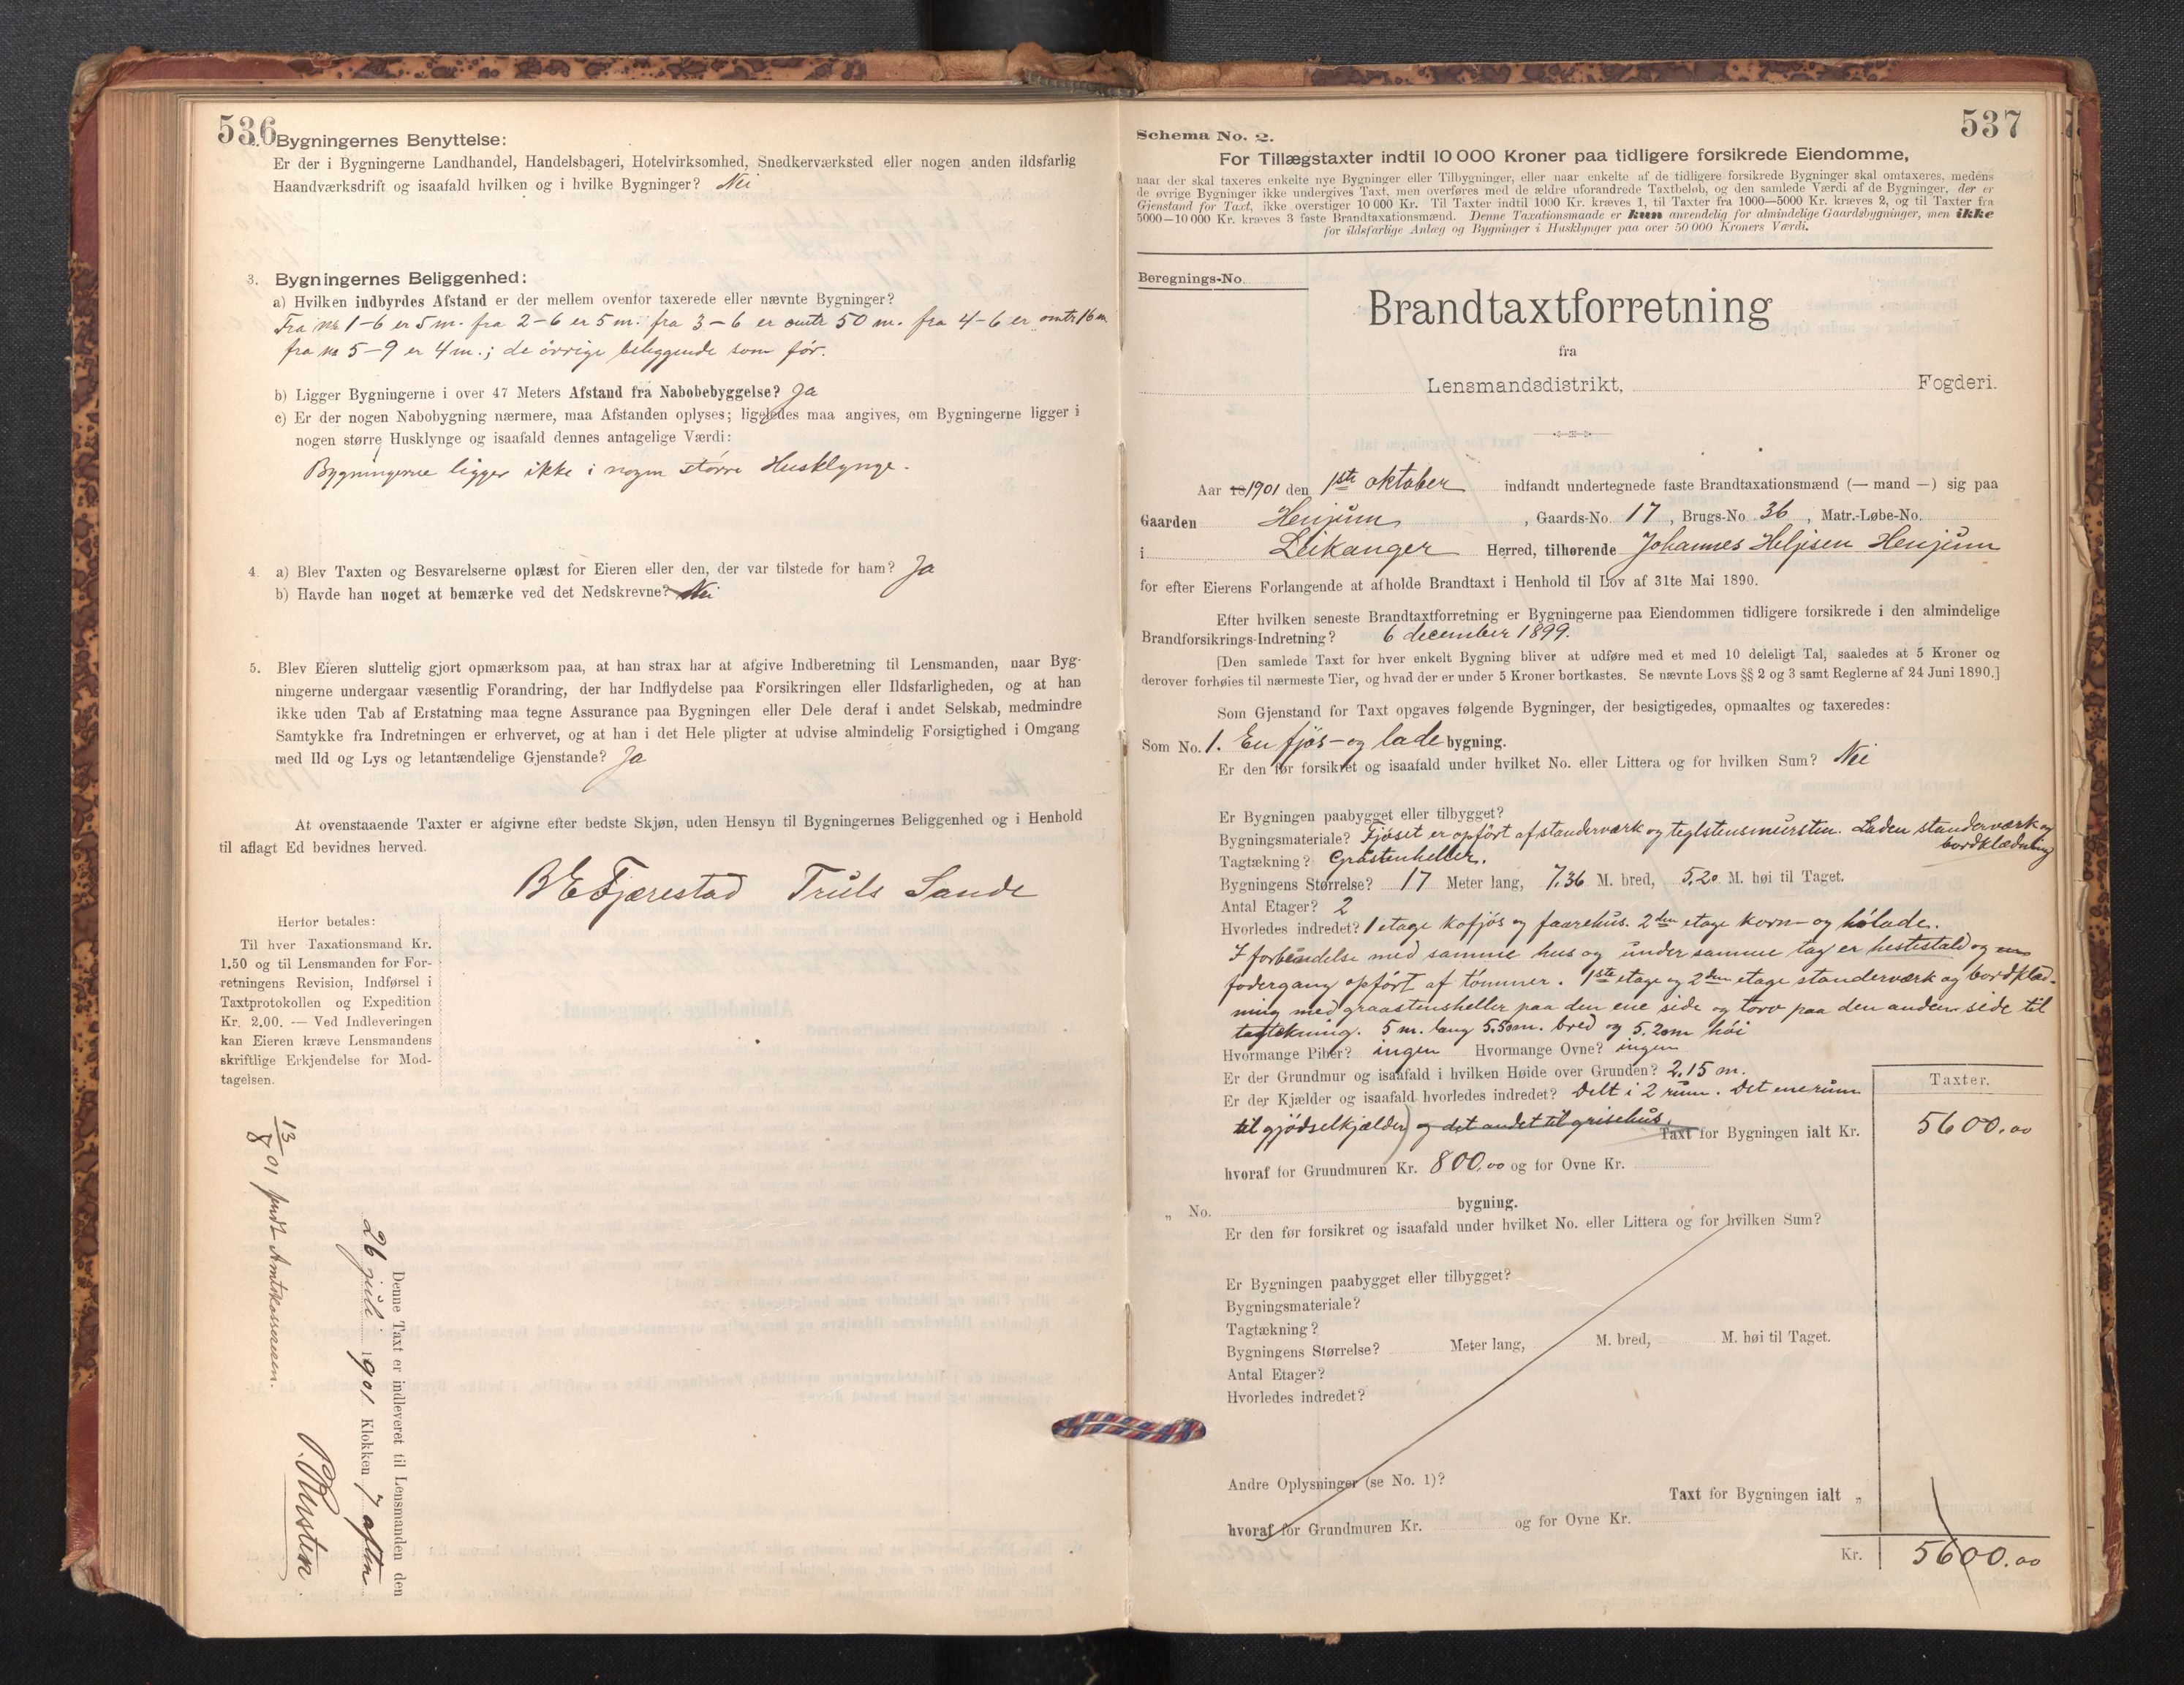 536
Bygningernes Benyttelse:
Er der i Bygningerne Landhandel, Handelsbageri, Hotelvirksomhed, Snedkerværksted eller nogen anden ildsfarlig
Haandværksdrift og isaafald hvilken og i hvilke Bygninger? Nei
3. Bygningernes Beliggenhed:
a) Hvilken indbyrdes Afstand er der mellem ovenfor taxerede eller nævnte Bygninger?
Fra no 1-6 er 5 m. fra 2-6 er 5 m. fra 3-6 er omtr 50 m. fra 4-6 er omtr 16 m
fra no 5-9 er 4 m.; de örrige beliggende som för.
b) Ligger Bygningerne i over 47 Meters Afstand fra Nabobebyggelse? Ja
c) Er der nogen Nabobygning nærmere, maa Afstanden oplyses; ligeledes maa angives, om Bygningerne ligger i
nogen større Husklynge og isaafald dennes antagelige Værdi:
Bygningerne ligger ikke i nogen större Husklynge.
4. a) Blev Taxten og Besvarelserne oplæst for Eieren eller den, der var tilstede for ham? Ja
b) Havde han noget at bemærke ved det Nedskrevne? Nei
5. Blev Eieren sluttelig gjort opmærksom paa, at han strax har at afgive Indberetning til Lensmanden, naar Byg-
ningerne undergaar væsentlig Forandring, der har Indflydelse paa Forsikringen eller Ildsfarligheden, og at han
ikke uden Tab af Erstatning maa tegne Assurance paa Bygningen eller Dele deraf i andet Selskab, medmindre
Samtykke fra Indretningen er erhvervet, og at han i det Hele pligter at udvise almindelig Forsigtighed i Omgang
med Ild og Lys og letantændelige Gjenstande? Ja
At ovenstaaende Taxter er afgivne efter bedste Skjøn, uden Hensyn til Bygningernes Beliggenhed og i Henhold
til aflagt Ed bevidnes herved.
B E Fjærestad Truls Sande
Herfor betales:
Til hver Taxationsmand Kr.
1.50 og til Lensmanden for For-
retningens Revision, Indførsel i
Taxtprotokollen og Expedition
Kr. 2.00. — Ved Indleveringen
kan Eieren kræve Lensmandens
skriftlige Erkjendelse for Mod-
tagelsen.
Denne Taxt er indleveret til Lensmanden den
26 juli 1901 Klokken 7 aften
13/8 01 sendt Amtskassereren.
537
Schema No. 2.
For Tillægstaxter indtil 10 000 Kroner paa tidligere forsikrede Eiendomme,
naar der skal taxeres enkelte nye Bygninger eller Tilbygninger, eller naar enkelte af de tidligere forsikrede Bygninger skal omtaxeres, medens
de øvrige Bygninger ikke undergives Taxt, men overføres med de ældre uforandrede Taxtbeløb, og den samlede Værdi af de Bygninger, der er
Gjenstand for Taxt, ikke overstiger 10 000 Kr. Til Taxter indtil 1000 Kr. kræves 1, til Taxter fra 1000—5000 Kr. kræves 2, og til Taxter fra
5000—10 000 Kr. kræves 3 faste Brandtaxationsmænd. Denne Taxationsmaade er kun anvendelig for almindelige Gaardsbygninger, men ikke
for ildsfarlige Anlæg og Bygninger i Husklynger paa over 50 000 Kroners Værdi.
Beregnings-No.
Brandtaxtforretning
fra
Lensmandsdistrikt, Fogderi.
Aar 18 1901 den 1ste oktober indfandt undertegnede faste Brandtaxationsmænd (— mand —) sig paa
Gaarden Henjum, Gaards-No. 17, Brugs-No. 36, Matr.-Løbe-No.
i Leikanger Herred, tilhørende Johannes Heljesen Henjum
for efter Eierens Forlangende at afholde Brandtaxt i Henhold til Lov af 31te Mai 1890.
Efter hvilken seneste Brandtaxtforretning er Bygningerne paa Eiendommen tidligere forsikrede i den almindelige
Brandforsikrings-Indretning? 6 december 1899.
[Den samlede Taxt for hver enkelt Bygning bliver at udføre med et med 10 deleligt Tal, saaledes at 5 Kroner og
derover forhøies til nærmeste Tier, og hvad der er under 5 Kroner bortkastes. Se nævnte Lovs §§ 2 og 3 samt Reglerne af 24 Juni 1890.]
Som Gjenstand for Taxt opgaves følgende Bygninger, der besigtigedes, opmaaltes og taxeredes:
Som No. 1. En fjös- og lade bygning.
Er den før forsikret og isaafald under hvilket No. eller Littera og for hvilken Sum? Nei
Er Bygningen paabygget eller tilbygget?
Bygningsmateriale? Fjöset er opfört af standerværk og teglstensmursten. Laden standerværk og
bordklædning
Tagtækning? Gråstenheller.
Bygningens Størrelse? 17 Meter lang, 7.36 M. bred, 5.20 M. høi til Taget.
Antal Etager? 2
Hvorledes indredet? 1 etage kofjös og faarehus. 2den etage korn- og hölade.
I forbindelse med samme hus og under samme tag er hestestald og en
fodergang opfört af tömmer. 1ste etage og 2den etage standerværk og bordklæd-
ning med graastensheller paa den ene side og torv paa den anden side til
tagtækning. 5 m. lang 5.50 m. bred og 5.20 m höi
Hvormange Piber? ingen Hvormange Ovne? ingen
Er der Grundmur og isaafald i hvilken Høide over Grunden? 2.15 m.
Er der Kjælder og isaafald hvorledes indredet? Delt i 2 rum. Det ene rum
til gjödselkjælder og det andet til grisehus.
Taxt for Bygningen ialt Kr.
Taxter.
5600.00
hvoraf for Grundmuren Kr. 800.00 og for Ovne Kr.
„ No. bygning.
Er den før forsikret og isaafald under hvilket No. eller Littera og for hvilken Sum?
Er Bygningen paabygget eller tilbygget?
Bygningsmateriale?
Tagtækning?
Bygningens Størrelse? Meter lang, M. bred, M. høi til Taget.
Antal Etager?
Hvorledes indredet?
Andre Oplysninger (se No. 1)?
Taxt for Bygningen ialt „
hvoraf for Grundmuren Kr. og for Ovne Kr.
Kr. 5600.00